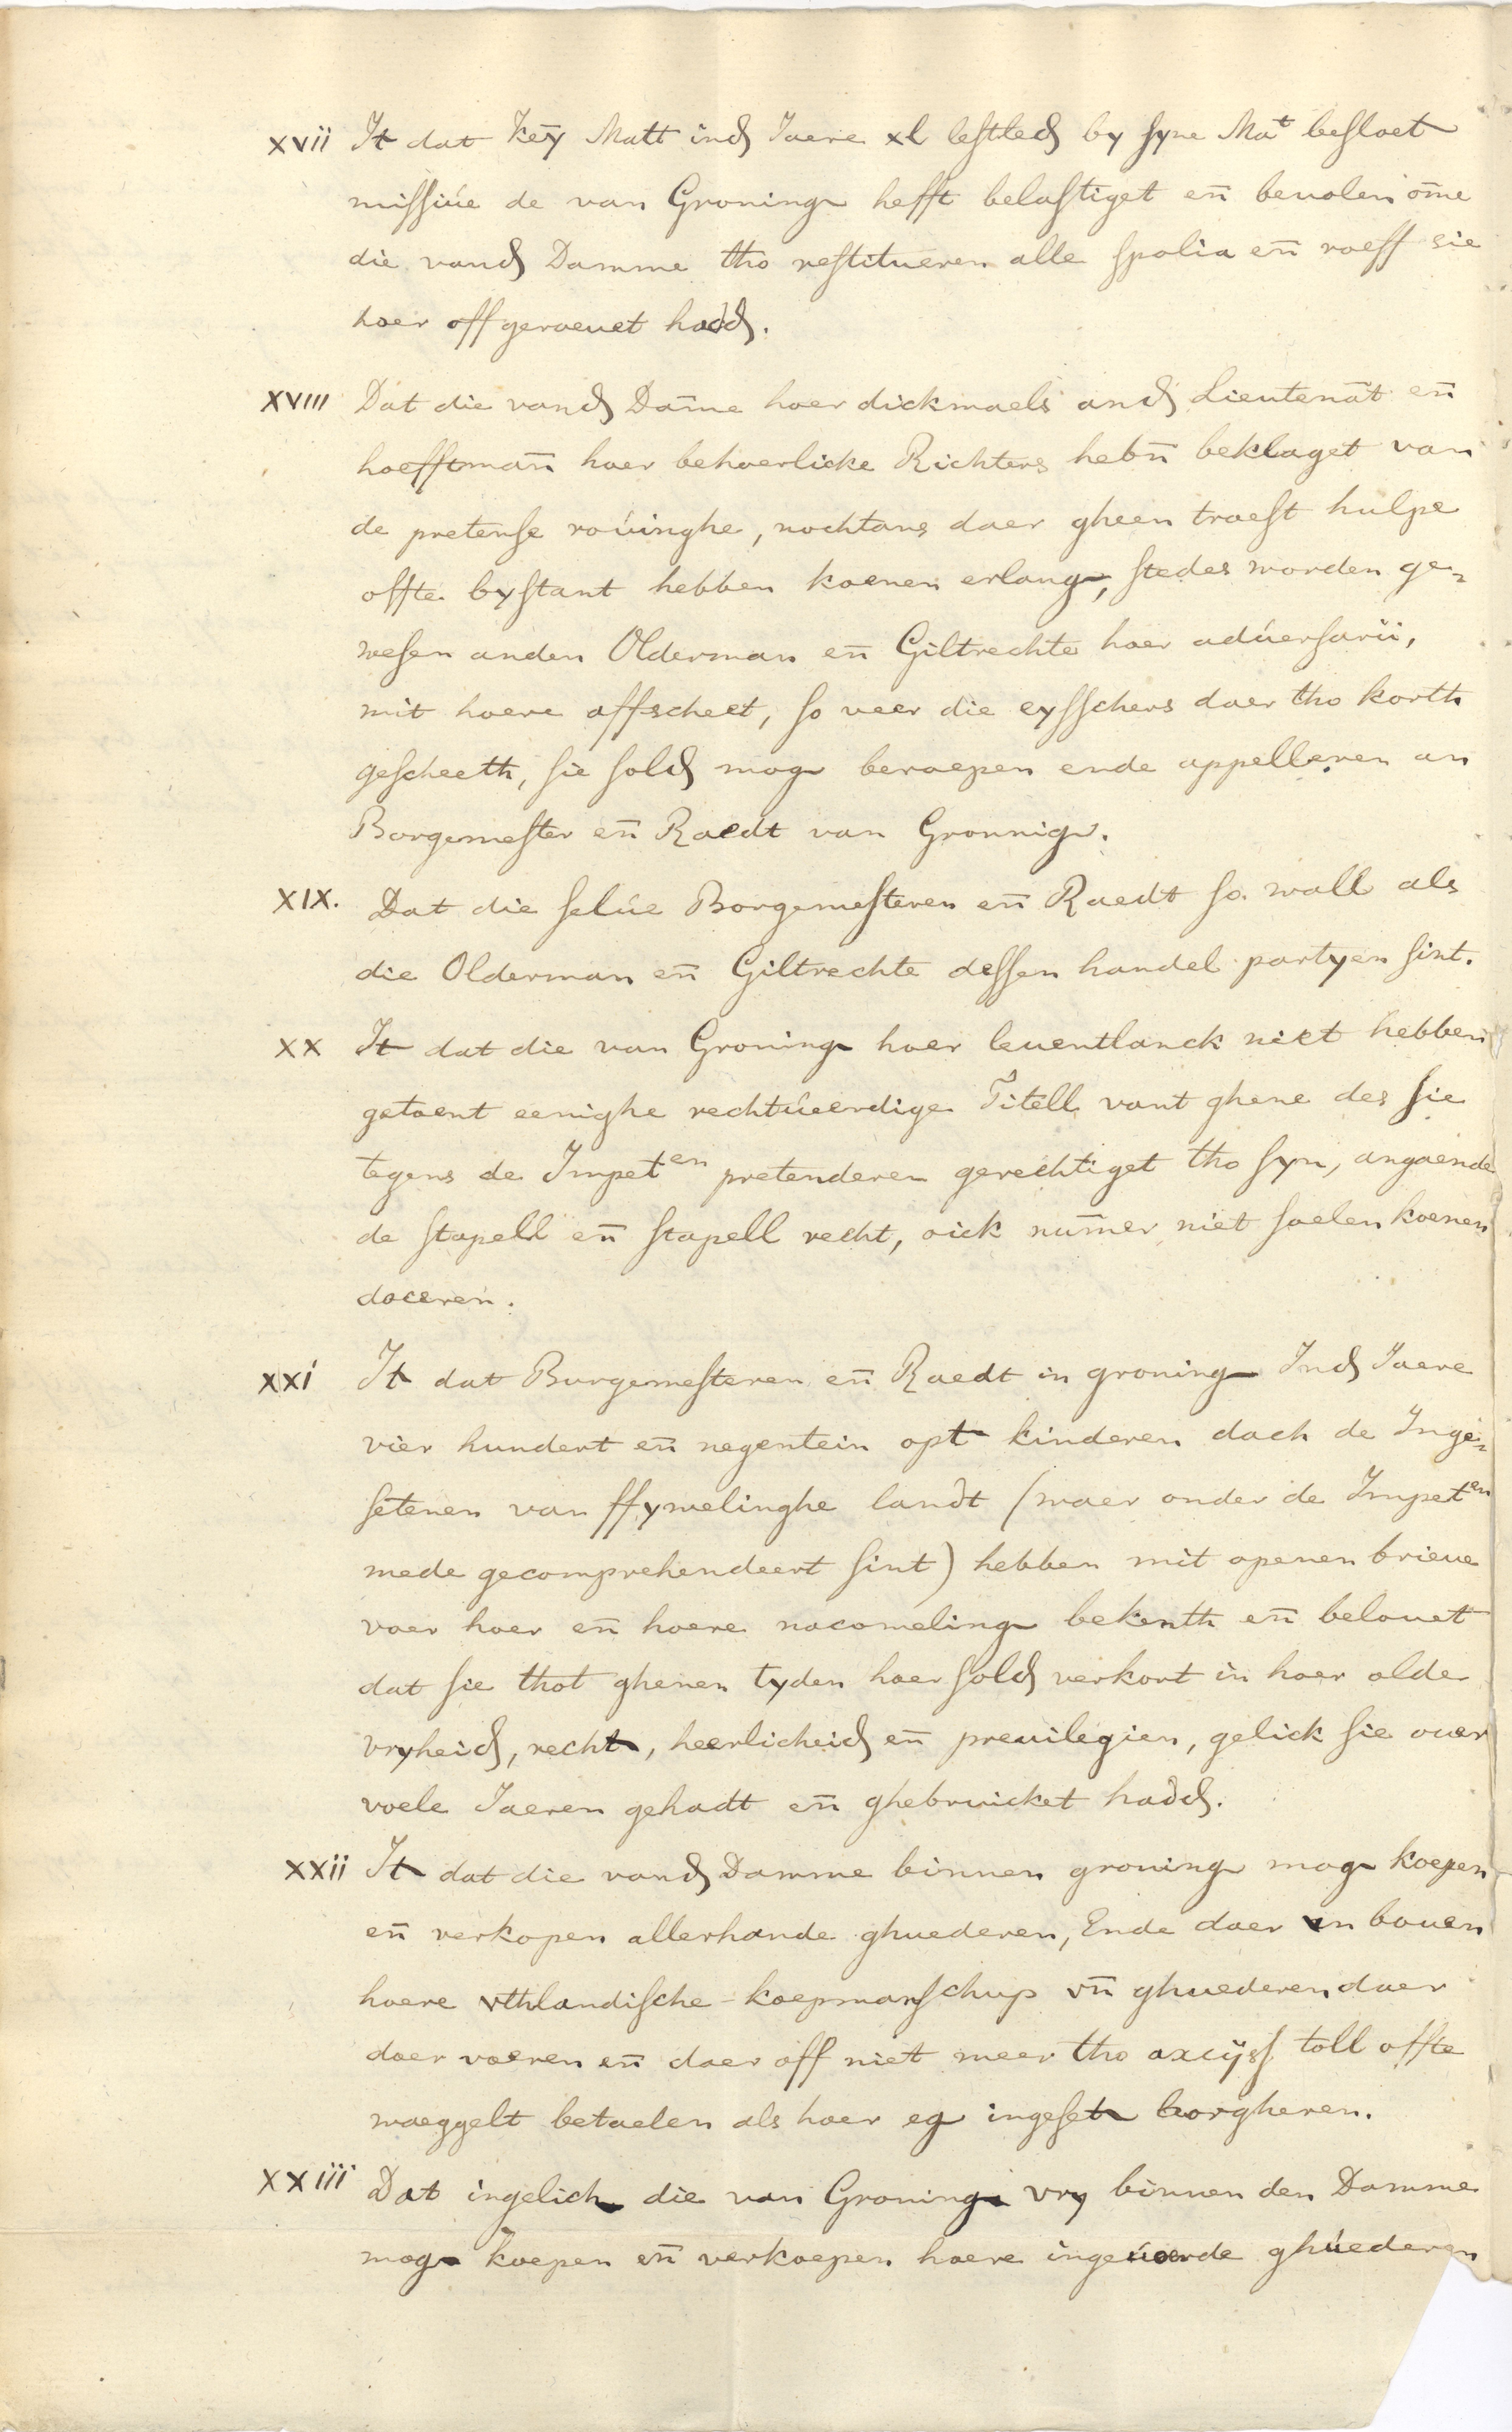 xvii It dat Key Matt ind Jaere xl lestled by syne Mat besloet
missiue de van Groning hefft belastiget en̄ beuolen om̄e
die vand Damme tho restitueren alle spolia en̄ roeff sie
hoer offgeroeuet hadd.
XVIII Dat die vand Dam̄e hoer dickmaels and Lieutenāt en̄
hoefftman̄ hoer behoerlicke Richters hebn̄ beklaget van
de pretense roúinghe, nochtans daer gheen troest hulpe
offte bystant hebben koenen erlang, stedes worden ge=
wesen anden Olderman en̄ Giltrechte hoer adúersarii,
mit hoere affscheet, so veer die eysschers daer tho korth
gescheeth, sie sold mog beroepen ende appelleren an
Borgemester en̄ Raedt van Gronnig.
XIX. Dat die selúe Borgemesteren en̄ Raedt so wall als
die Olderman en̄ Giltrechte dessen handel partyen sint.
XX It dat die van Groning hoer leuentlanck niet hebben
getoent eenighe rechtúeerdige Titell vant ghene des sie
tegens de Impet^en pretenderen gerechtiget tho syn, angaende
de stapell en̄ stapell recht, oick num̄er niet soelen koenen
doceren.
xxi It dat Burgemesteren en̄ Raedt in groning Ind Jaere
vier hundert en̄ negentein opt kinderen dach de Inge=
setenen van ffywelinghe landt (waer onder de Impet^en
mede gecomprehendeert sint) hebben mit openen brieue
voer hoer en̄ hoere nacomeling bekenth en̄ belouet
dat sie thot ghenen tyden hoer sold verkort in hoer olde
vryheid, recht, heerlicheid en̄ preuilegien, gelick sie ouer
voele Jaeren gehadt en̄ ghebruicket hadd.
xxii It dat die vand Damme binnen groning mog koepen
en̄ verkopen allerhande ghuederen, Ende daer en bouen
hoere vthlandische koepmanschup vn̄ ghuederen daer
doer voeren en̄ daer off niet meer tho axcijss toll offte
waeggelt betaelen als hoer eg ingeset borgheren.
XXiii Dat ingelich die van Groning vry binnen den Damme
mog koepen en̄ verkoepen hoere ingeúoerde ghúederen